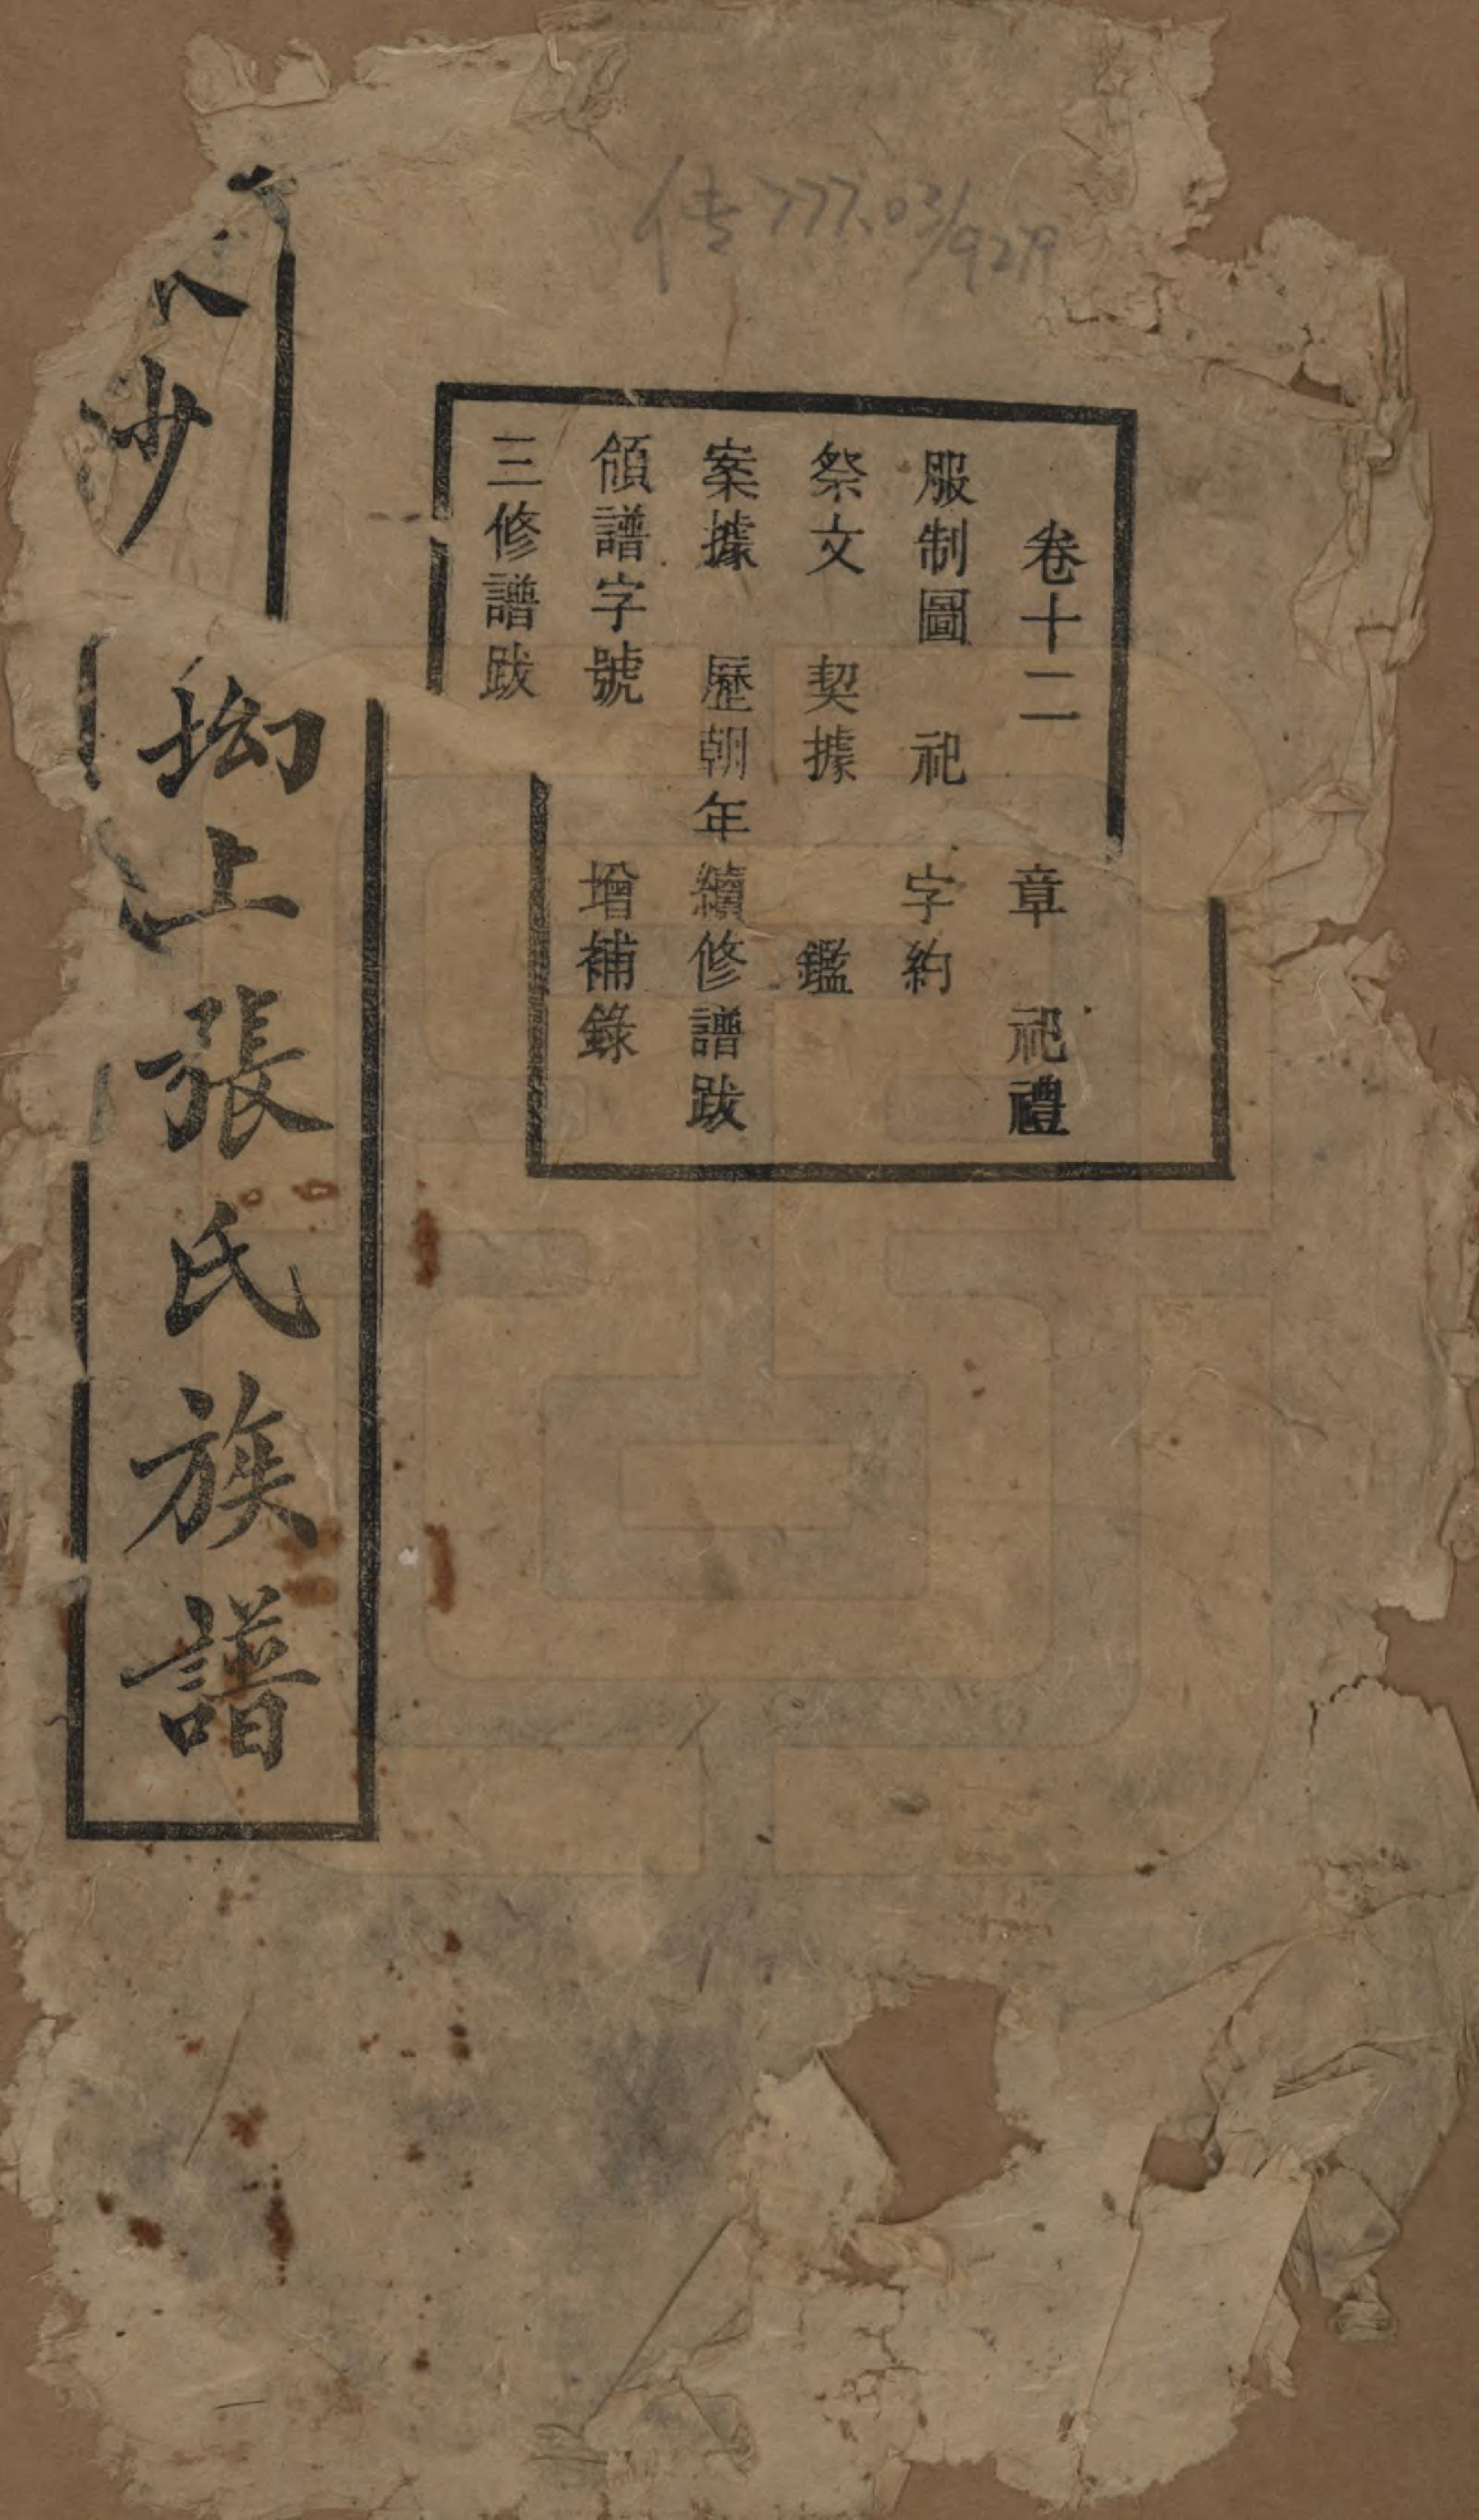 传777.03/9279
卷十二
服制圖 祀 章 祀禮
祭文 契據 字約
案據 歷朝年 鑑
領譜字號 續修譜跋
三修譜跋 增補錄
沙 坳上張氏族譜